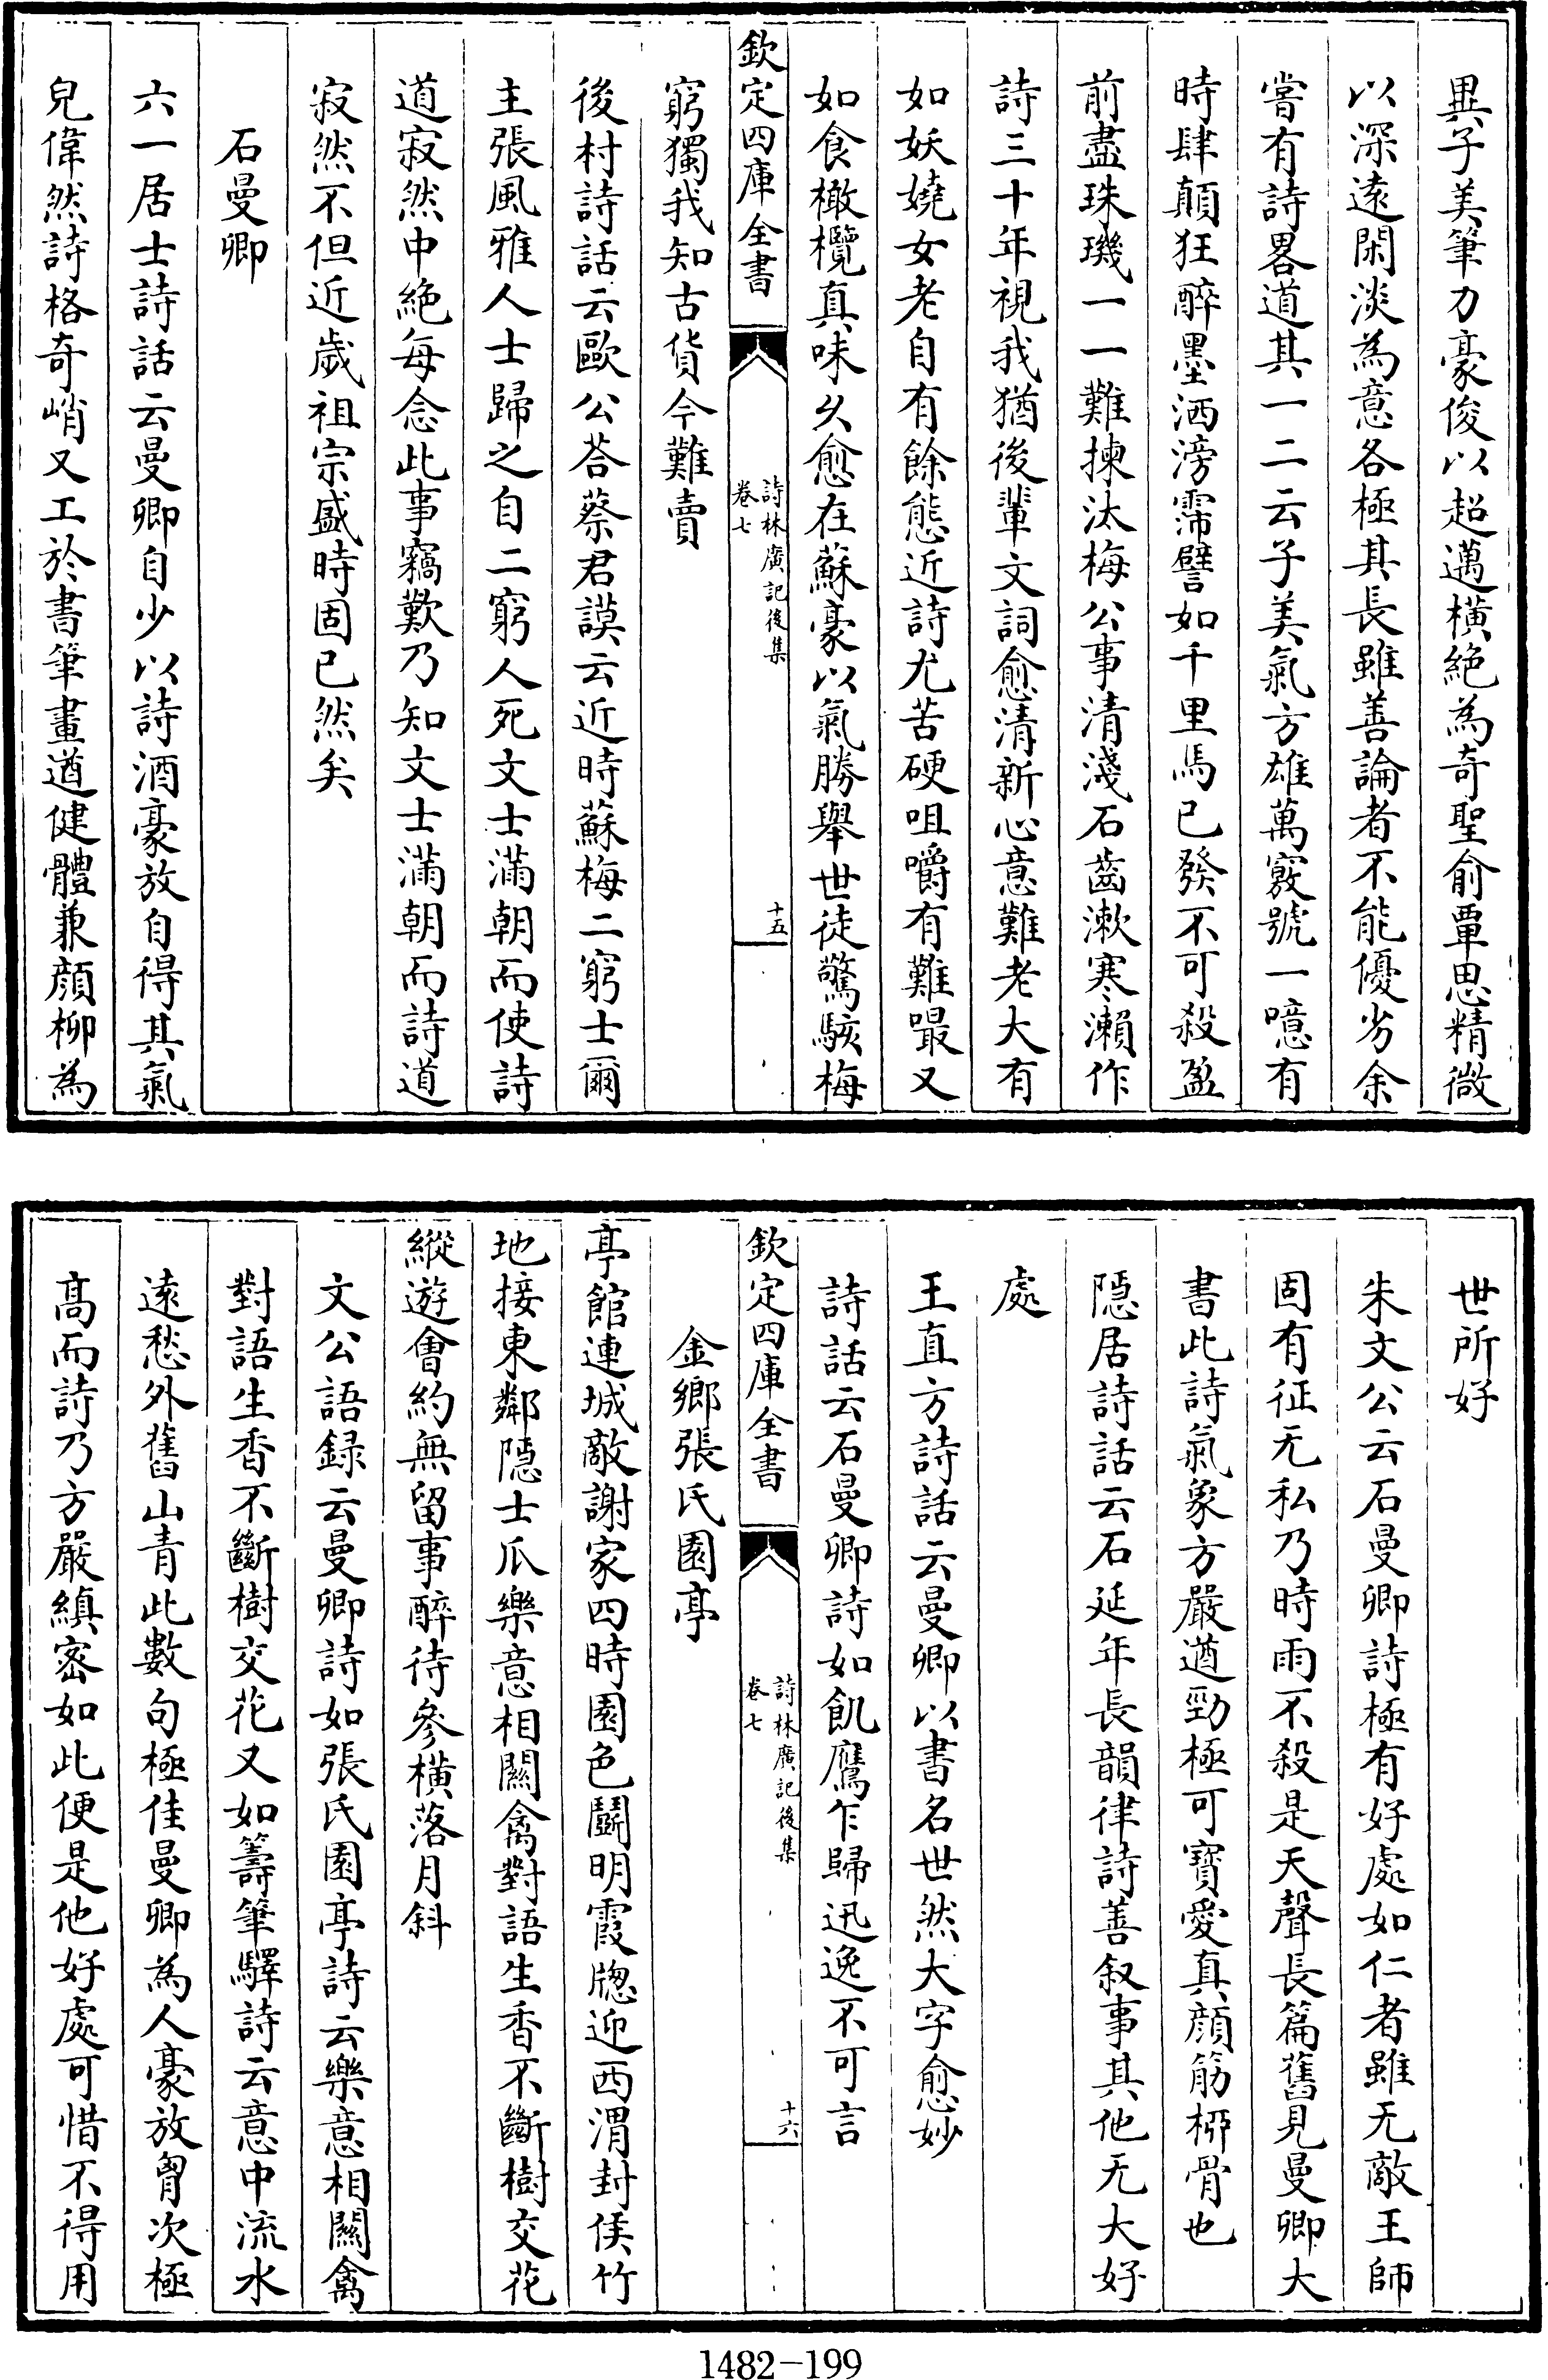 異子美筆力豪俊以超邁橫絶為奇聖俞覃思精微
以深遠閑淡為意各極其長雖善論者不能優劣余
嘗有詩畧道其一二云子美氣方雄萬竅號一噫有
時肆顛狂醉墨洒滂霈譬如千里馬已發不可殺盈
前盡珠璣一一難揀汰梅公事清淺石齒漱寒瀨作
詩三十年視我猶後輩文詞愈清新心意難老大有
如妖嬈女老自有餘態近詩尤苦硬咀嚼有難嘬又
如食橄欖真味久愈在蘇豪以氣勝舉世徒驚駭梅
欽定四庫全書
詩林廣記後集
卷七
十五
窮獨我知古貨今難賣
後村詩話云歐公荅蔡君謨云近時蘇梅二窮士爾
主張風雅人士歸之自二窮人死文士滿朝而使詩
道寂然中絶每念此事竊歎乃知文士滿朝而詩道
寂然不但近歲祖宗盛時固已然矣
石曼卿
六一居士詩話云曼卿自少以詩酒豪放自得其氣
皃偉然詩格奇峭又工於書筆畫遒健體兼顔柳為
世所好
朱文公云石曼卿詩極有好處如仁者雖无敵王師
固有征无私乃時雨不殺是天聲長篇舊見曼卿大
書此詩氣象方嚴遒勁極可寶愛真顔筋栁骨也
隱居詩話云石延年長韻律詩善叙事其他无大好
處
王直方詩話云曼卿以書名世然大字愈妙
詩話云石曼卿詩如飢鷹乍歸迅逸不可言
欽定四庫全書
詩林廣記後集
卷七
十六
金鄉張氏園亭
亭館連城敵謝家四時園色鬬明霞牎迎西渭封侯竹
地接東鄰隱士瓜樂意相關禽對語生香不斷樹交花
縱遊會約無留事醉待參橫落月斜
文公語録云曼卿詩如張氏園亭詩云樂意相關禽
對語生香不斷樹交花又如籌筆驛詩云意中流水
遠愁外舊山青此數句極佳曼卿為人豪放胷次極
高而詩乃方嚴縝宻如此便是他好處可惜不得用
1482-199